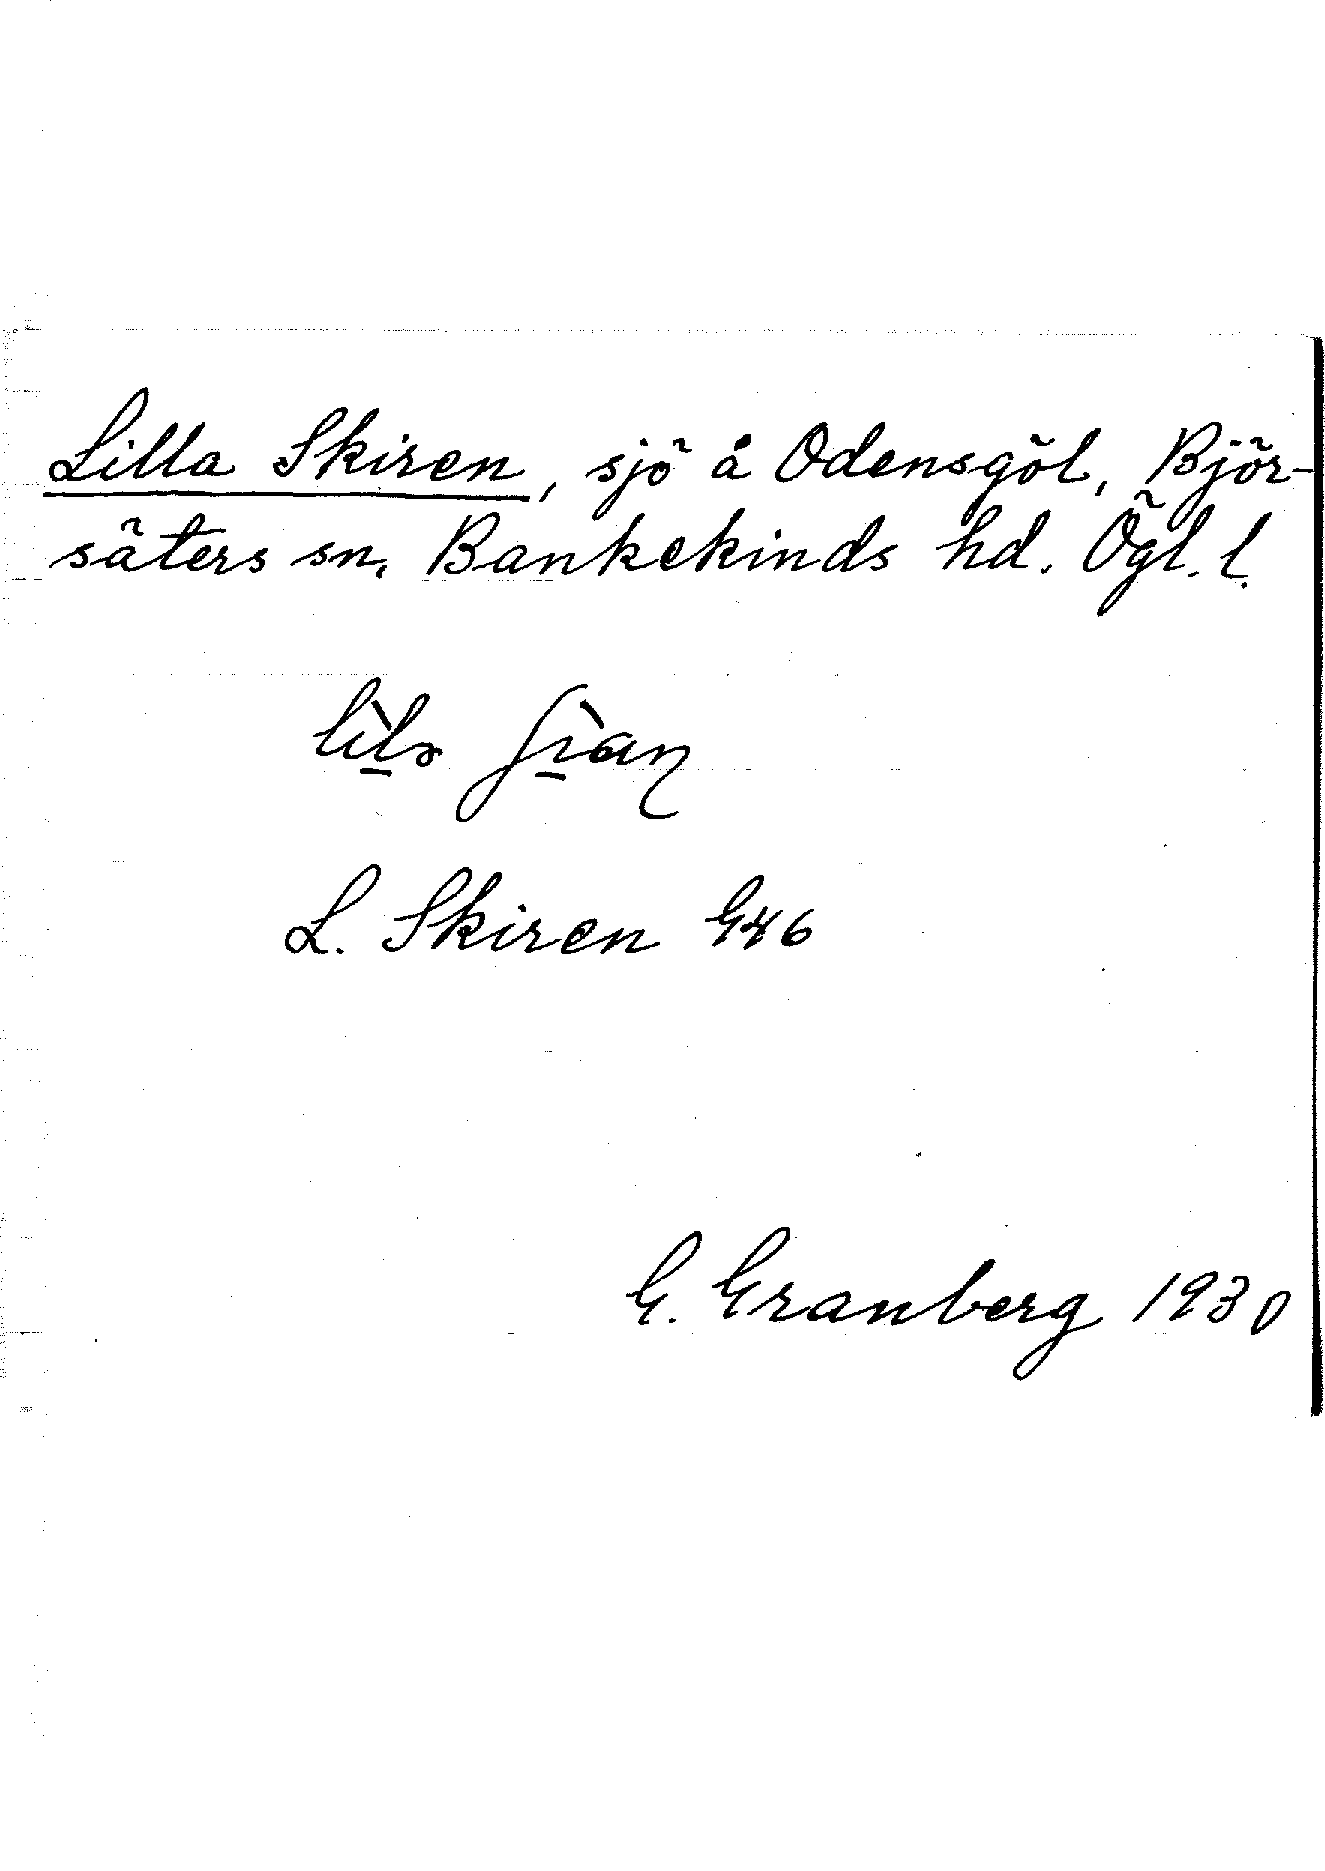 Lilla Skiren, sjö å Odensgöl, Björ-
säters sn, Bankekinds hd. Ögl. l.
L. Skiren G46
G. Granberg 1930